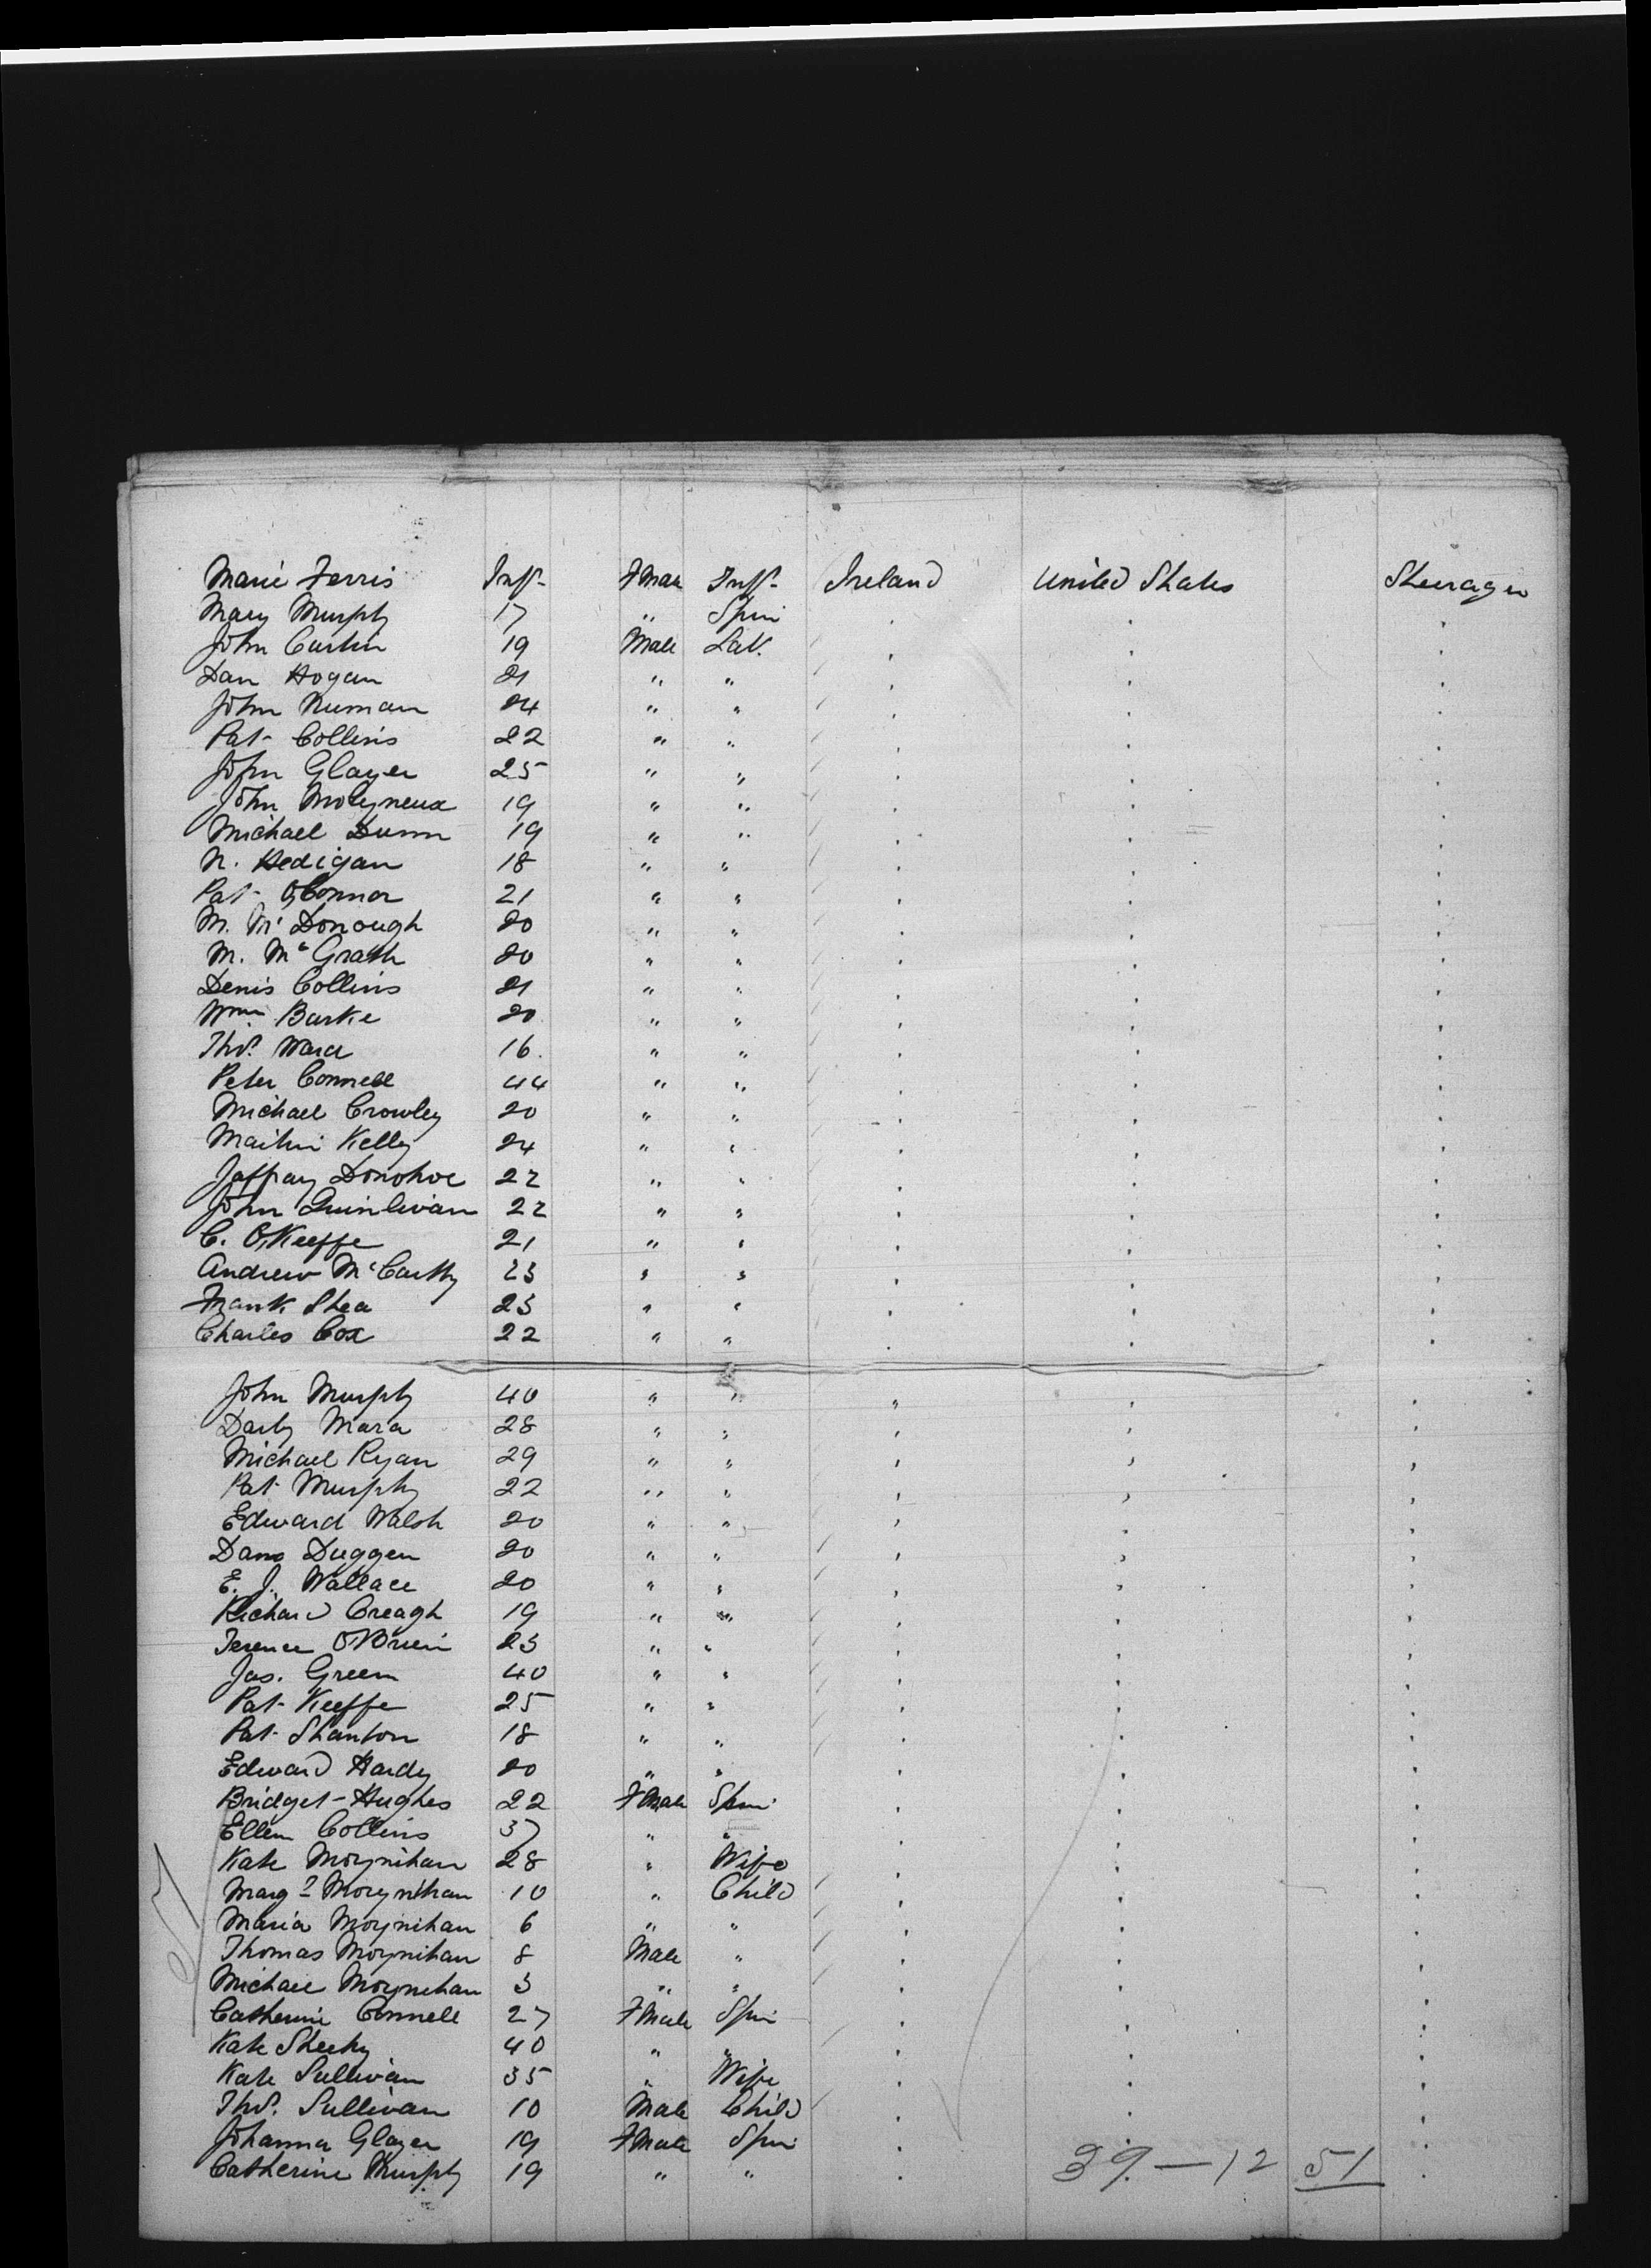 Marie Ferris Inft. F Male Inft. Ireland United States Steerage
Mary Murphy 17 " Spin
John Curtin 19 Male Lab.
Dan Hogan 21 " "
John Numan 24 " "
Pat Collins 22 " "
John Glayer 25 " "
John Molyneux 19 " "
Michael Dunn 19 " "
N. Hedigan 18 " "
Pat O'Connor 21 " "
M. McDonough 20 " "
M. McGrath 20 " "
Denis Collins 21 " "
Wm. Burke 20 " "
Thos. Ward 16 " "
Peter Connell 44 " "
Michael Crowley 20 " "
Martin Kelly 24 " "
Jaffray Donohoe 22 " "
John Quinlivan 22 " "
C. O'Keeffe 21 " "
Andrew McCarthy 23 " "
Frank Shea 23 " "
Charles Cox 22 " "
John Murphy 40 " "
Darby Mara 28 " "
Michael Ryan 29 " "
Pat Murphy 22 " "
Edward Walsh 20 " "
Dano Duggen 20 " "
E. J. Wallace 20 " "
Richard Creagh 19 " "
Terence O'Brien 23 " "
Jas. Green 40 " "
Pat Keeffe 25 " "
Pat Shanton 18 " "
Edward Hardy 20 " "
Bridget Hughes 22 F Male Spin
Ellen Collins 37 " "
Kate Moynihan 28 " Wife
Margt. Moynihan 10 " Child
Maria Moynihan 6 " "
Thomas Moynihan 8 Male "
Michael Moynihan 3 " "
Catherine Connell 27 F Male Spin
Kate Sheehy 40 " "
Kate Sullivan 35 " Wife
Thos. Sullivan 10 Male Child
Johanna Glayer 19 F Male Spin
Catherine Murphy 19 " " 39 — 12 51